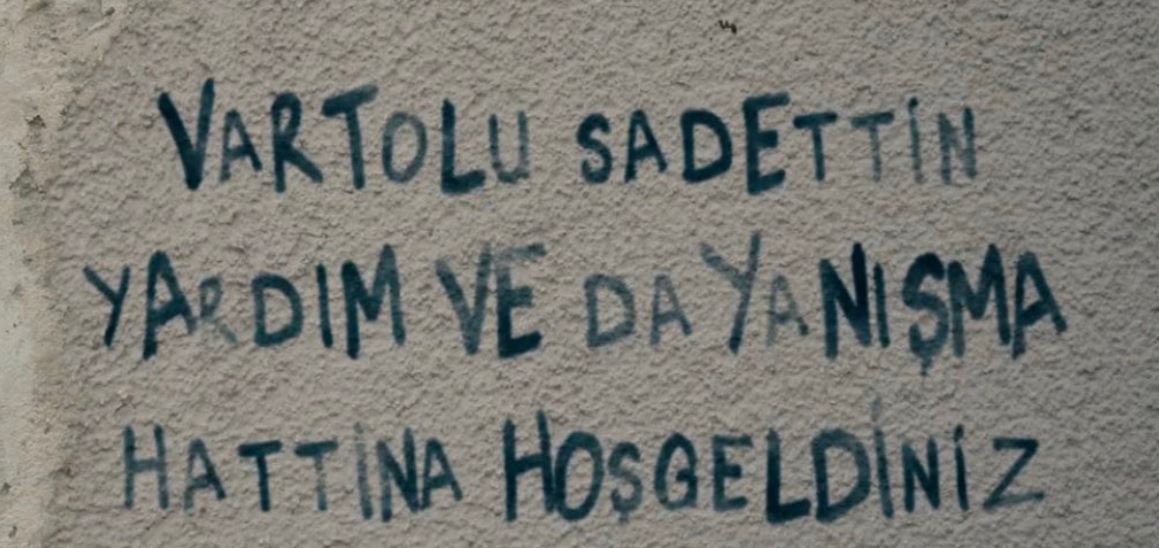 VARTOLU SADETTİN
YARDIM VE DAYANIŞMA
HATTİNA HOŞGELDİNİZ